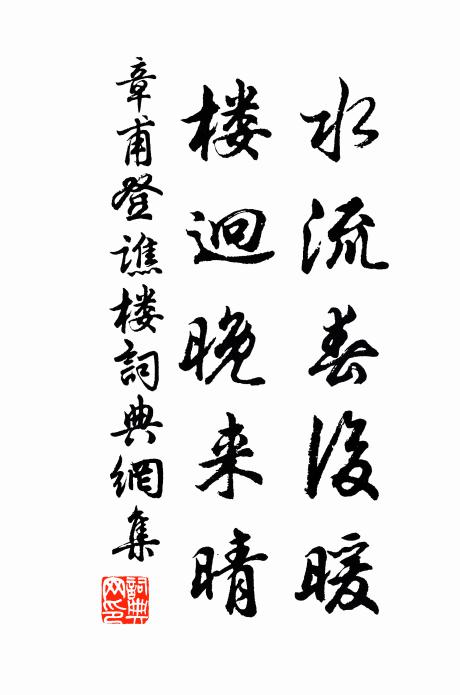 水流春后暖
楼迥晚来晴
章甫登譙楼詞典網集
詞典网印